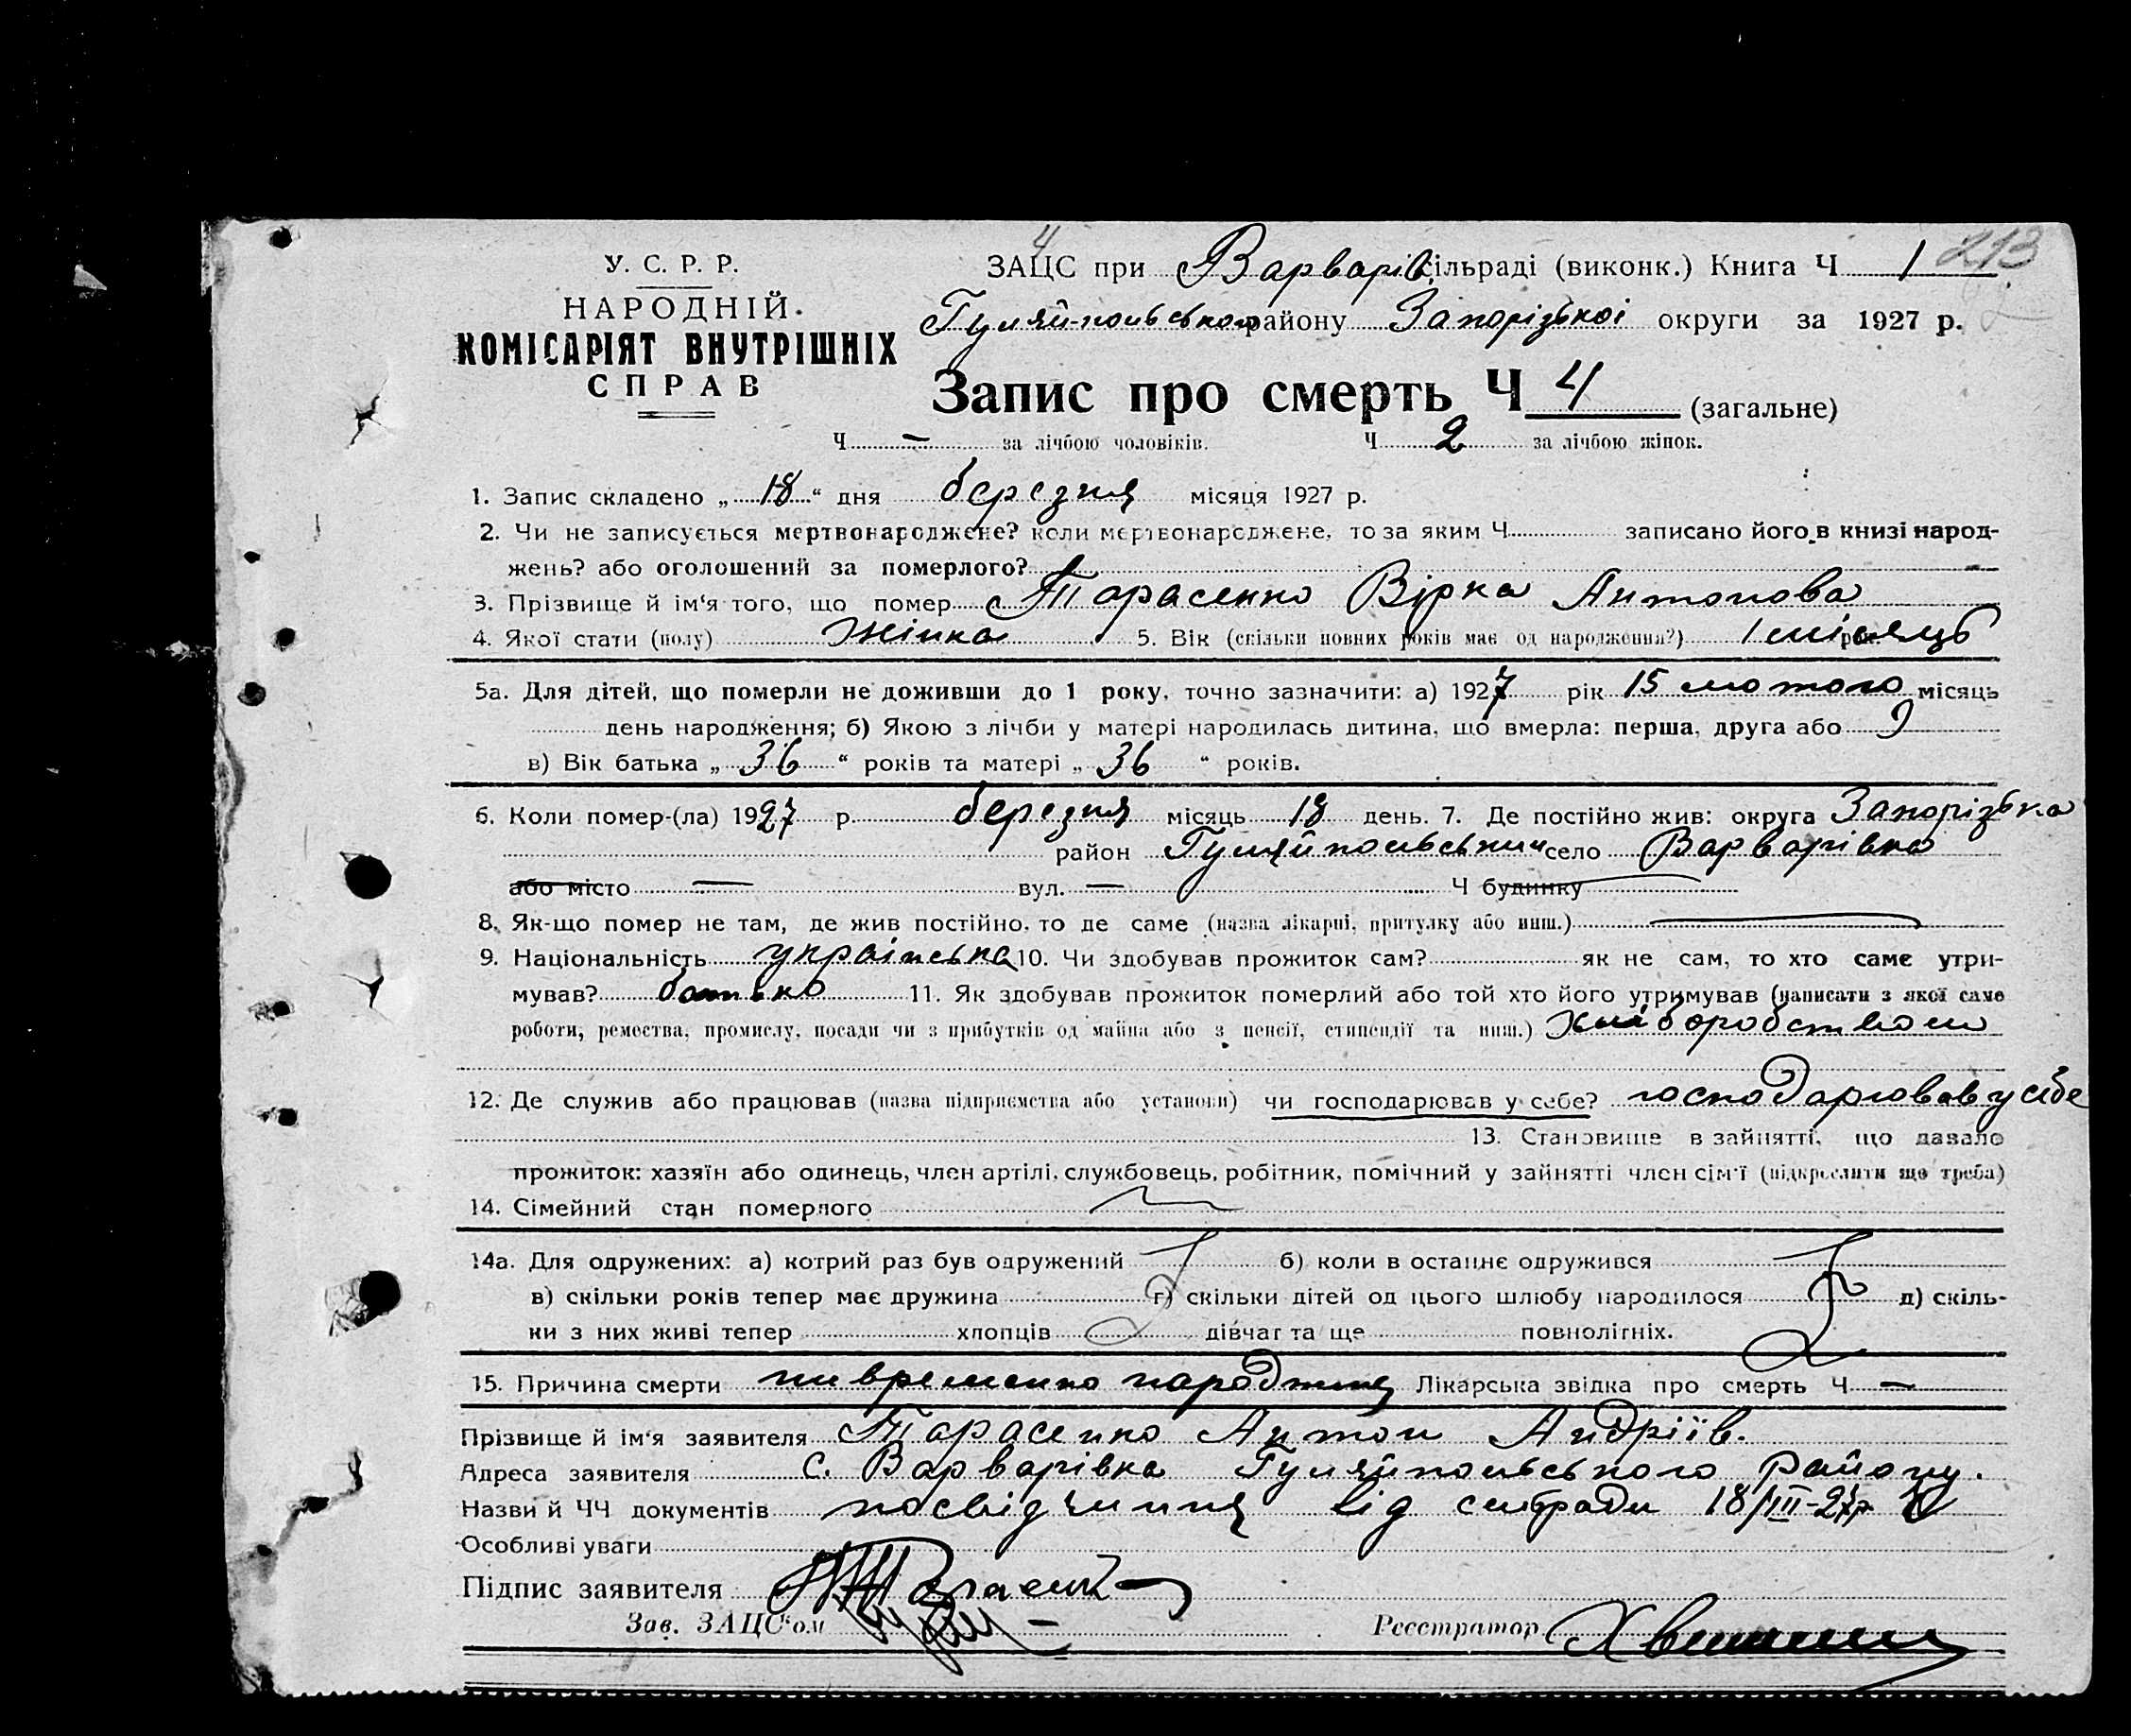 4
У. С. Р. Р.
НАРОДНІЙ
КОМІСАРІЯТ ВНУТРІШНІХ
СПРАВ
ЗАЦС при Варварів сільраді (виконк.) Книга Ч 1 213
Гуляй-польського району Запорізької округи за 1927 р.
Запис про смерть Ч 4 (загальне)
Ч — за лічбою чоловіків. Ч 2 за лічбою жінок.
1. Запис складено „ 18 “ дня березня місяця 1927 р.
2. Чи не записується мертвонароджене? коли мертвонароджене, то за яким Ч записано його в книзі народ-
жень? або оголошений за померлого?
3. Прізвище й ім'я того, що помер Тарасенко Вірка Антонова
4. Якої стати (полу) Жінка 5. Вік (скільки повних років має од народження?) 1 місяць рок.
5а. Для дітей, що померли не доживши до 1 року, точно зазначити: а) 1927 рік 15 лютого місяць
день народження; б) Якою з лічби у матері народилась дитина, що вмерла: перша, друга або 9
в) Вік батька „ 36 “ років та матері „ 36 “ років.
6. Коли помер-(ла) 1927 р. березня місяць 18 день. 7. Де постійно жив: округа Запорізька
район Гуляйпольський село Варварівка
або місто — вул. — Ч будинку
8. Як-що помер не там, де жив постійно, то де саме (назва лікарні, притулку або инш.)
9. Національність українська 10. Чи здобував прожиток сам? як не сам, то хто саме утри-
мував? батько 11. Як здобував прожиток померлий або той хто його утримував (написати з якої саме
роботи, ремества, промислу, посади чи з прибутків од майна або з пенсії, стипендії та инш.) хліборобством
12. Де служив або працював (назва підприємства або установи) чи господарював у себе? господарював у себе
13. Становище в зайнятті, що давало
прожиток: хазяїн або одинець, член артілі, службовець, робітник, помічний у зайнятті член сім'ї (підкреслити що треба)
14. Сімейний стан померлого
14а. Для одружених: а) котрий раз був одружений б) коли в останнє одружився
в) скільки років тепер має дружина г) скільки дітей од цього шлюбу народилося д) скіль-
ки з них живі тепер хлопців дівчат та ще повнолітніх.
15. Причина смерти народження Лікарська звідка про смерть Ч —
Прізвище й ім'я заявителя Тарасенко Антон Андріїв.
Адреса заявителя с. Варварівка Гуляйпольського району.
Назви й ЧЧ документів посвідчиння від сільради 18/III-27р.
Особливі уваги
Підпис заявителя
Зав. ЗАЦС'ом Реєстратор